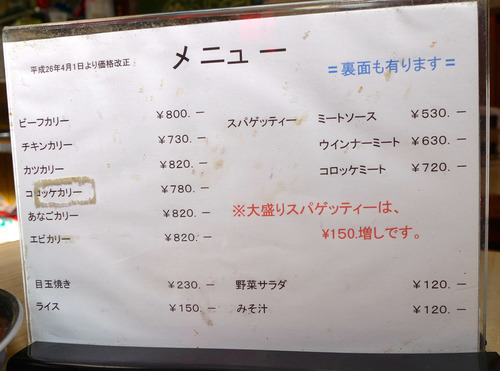 メニュー
平成26年4月1日より価格改正
＝裏面も有ります＝
ビーフカリー ￥800.－
チキンカリー ￥730.－
カツカリー ￥820.－
コロッケカリー ￥780.－
あなごカリー ￥820.－
エビカリー ￥820.－
スパゲッティー ミートソース ￥530.－
ウインナーミート ￥630.－
コロッケミート ￥720.－
※大盛りスパゲッティーは、
￥150.増しです。
目玉焼き ￥230.－
ライス ￥150.－
野菜サラダ ￥120.－
みそ汁 ￥120.－